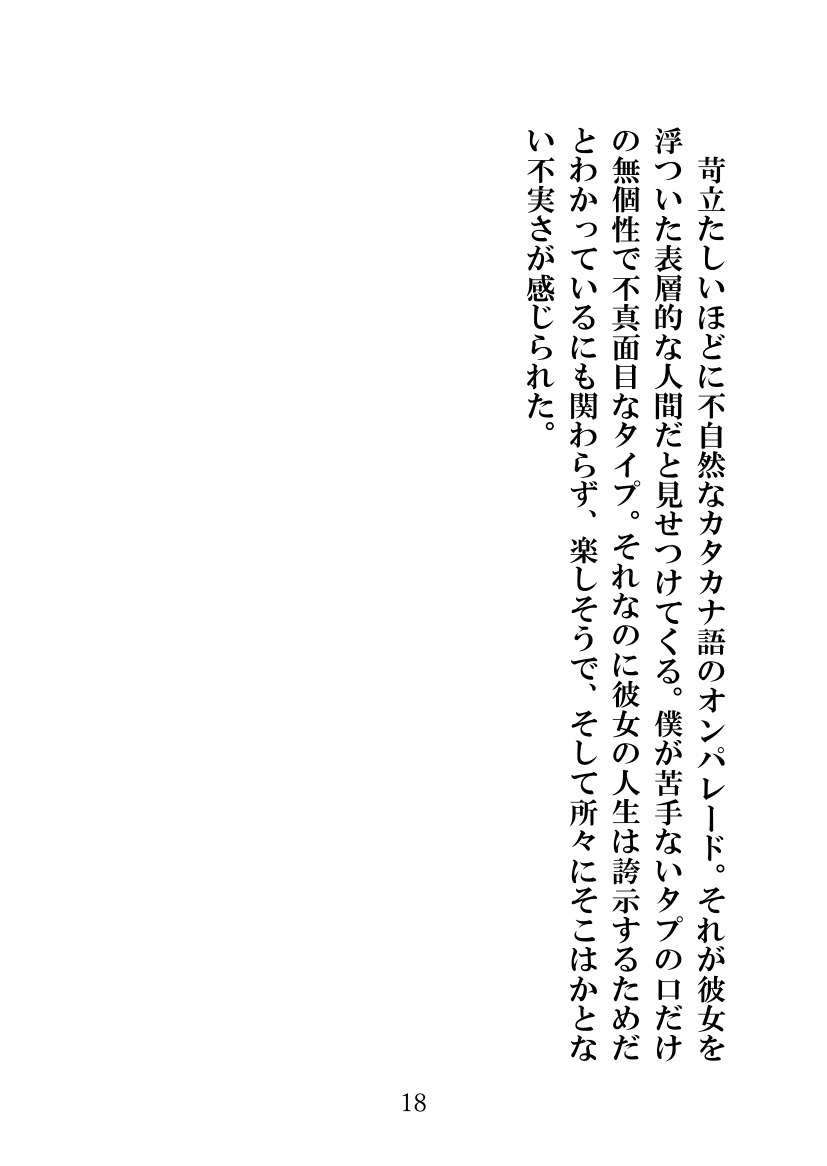 苛立たしいほどに不自然なカタカナ語のオンパレード。それが彼女を
浮ついた表層的な人間だと見せつけてくる。僕が苦手ないタプの口だけ
の無個性で不真面目なタイプ。それなのに彼女の人生は誇示するためだ
とわかっているにも関わらず、楽しそうで、そして所々にそこはかとな
い不実さが感じられた。
18